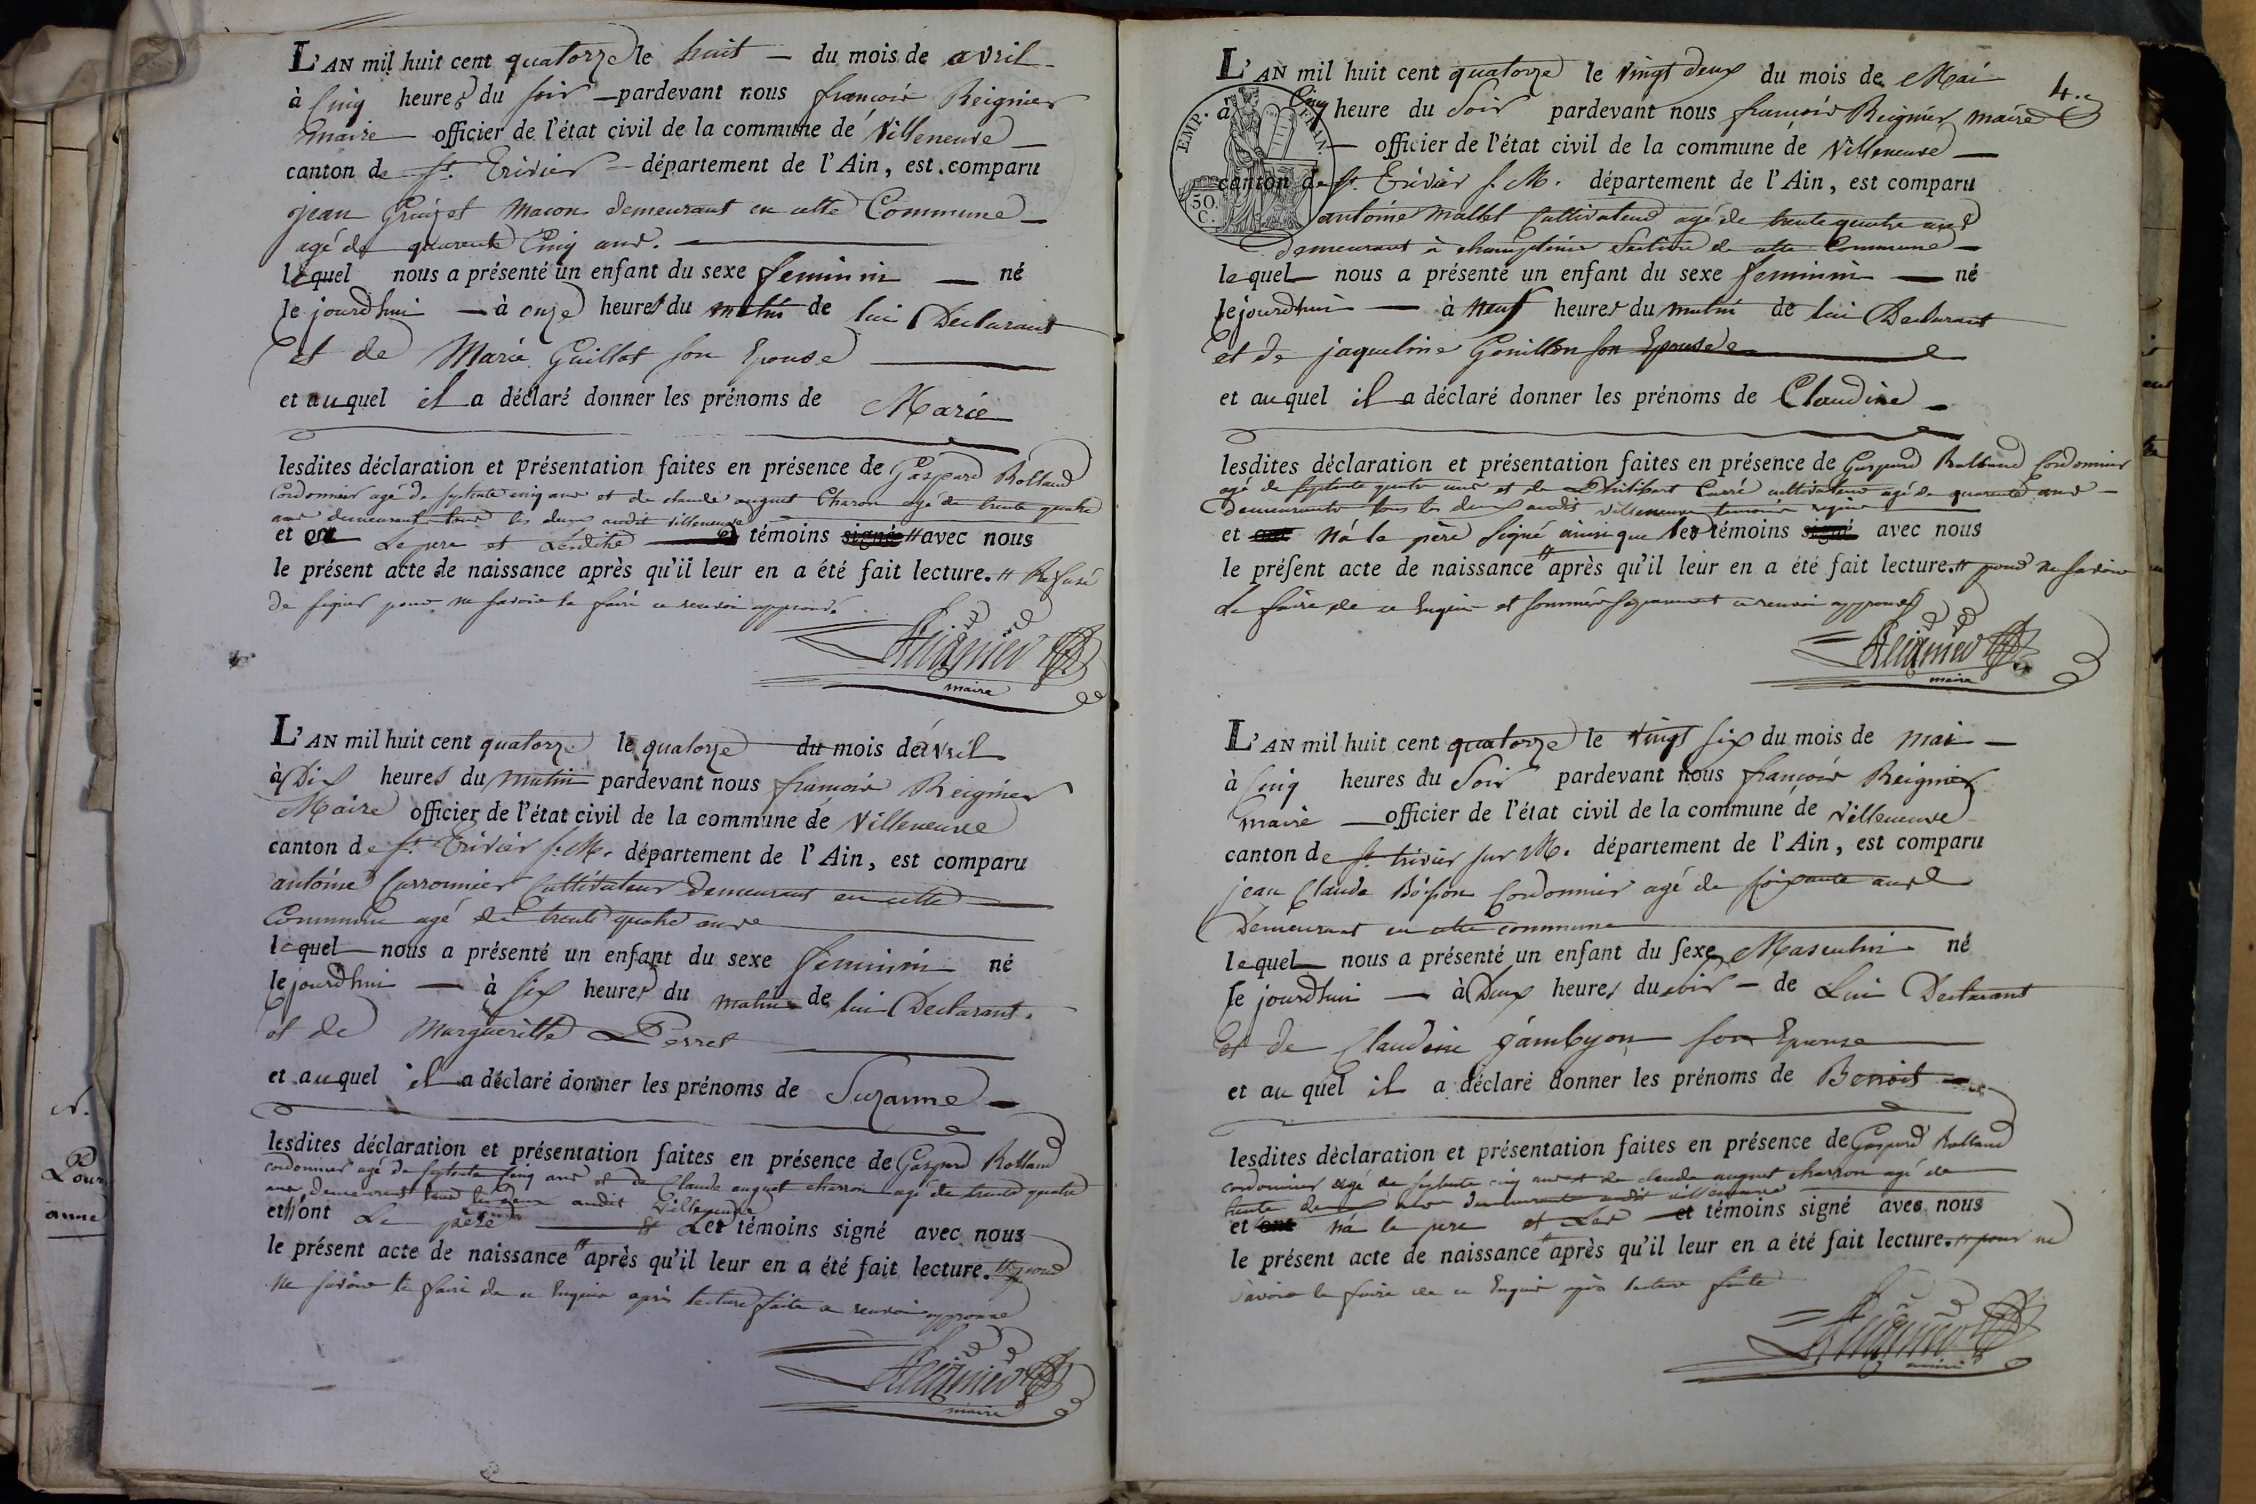 L'AN mil huit cent quatorze le huit — du mois de avril
à Cinq heures du soir — pardevant nous françois Reignier
maire — officier de l'état civil de la commune de Villeneuve —
canton de St. Trivier — département de l'Ain, est comparu
jean Macon demeurant en cette Commune —
agé de quarente Cinq ans. —
lequel nous a présenté un enfant du sexe feminin — né
le jourdhui — à onze heures du matin de lui Declarant
et de Marie Guillot son Epouse
et auquel il a déclaré donner les prénoms de Marie
lesdites déclaration et présentation faites en présence de Gaspard Rolland
Cordonnier agé de septente cinq ans et de claude auguet Charon agé de trente quatre
ans demeurant tous les deux audit villeneuve
et ont Le pere et témoins signé avec nous
le présent acte de naissance après qu'il leur en a été fait lecture. # Refusé
de signer pour ne savoir le faire ce renvoi approuvé
Reignier
maire
L'AN mil huit cent quatorze le quatorze du mois de avril
à Dix heures du matin pardevant nous françois Reignier
Maire officier de l'état civil de la commune de Villeneuve
canton de St. Trivier s. M. département de l'Ain, est comparu
antoine Carronnier Cultivateur demeurant en cette
Commune agé de trente quatre ans
lequel nous a présenté un enfant du sexe feminin né
le jourdhui — à six heures du matin de lui Declarant.
et de Margueritte Perret
et auquel il a déclaré donner les prénoms de Suzanne —
lesdites déclaration et présentation faites en présence de Gaspard Rolland
cordonnier agé de septente Cinq ans et de Claude auguet charron agé de trente quatre
ans demeurant tous les deux audit Villeneuve
et n'ont Le père et Les témoins signé avec nous
le présent acte de naissance # après qu'il leur en a été fait lecture. # pour
ne savoir le faire de ce Enquis après lecture faite ce renvoi approuvé
Reignier
maire
4.
EMP. FRAN.
50. C.
L'AN mil huit cent quatorze le vingt deux du mois de Mai
à Cinq heure du Soir pardevant nous françois Reignier maire
— officier de l'état civil de la commune de Villeneuve —
canton de St. Trivier s. M. département de l'Ain, est comparu
antoine Mallet Cultivateur agé de trente quatre ans
demeurant à Section de cette Commune —
lequel nous a présenté un enfant du sexe feminin — né
lejourdhui — à neuf heures du matin de lui Declarant
et de jaqueline Genillon son Epouse
et auquel il a déclaré donner les prénoms de Claudine —
lesdites déclaration et présentation faites en présence de Gaspard Rolland Cordonnier
agé de septente quatre ans et de Philibert Carré cultivateur agé de quarente ans —
demeurants tous les deux audit villeneuve temoins requis
et ont n'a le père signé ainsi que les témoins signé avec nous
le présent acte de naissance # après qu'il leur en a été fait lecture. # pour ne savoir
le faire de ce Enquis et sommés séparement ce renvoi approuvé
Reignier
maire
L'AN mil huit cent quatorze le vingt six du mois de mai —
à Cinq heures du Soir pardevant nous françois Reignier
maire — officier de l'état civil de la commune de Villeneuve
canton de St. trivier sur M. département de l'Ain, est comparu
jean Claude Cordonnier agé de soixante ans
Demeurant en cette commune
lequel nous a présenté un enfant du sexe Masculin né
le jourdhui — à Deux heures du soir — de Lui Declarant
et de Claudine gambyon son Epouse
et auquel il a déclaré donner les prénoms de Benoit —
lesdites déclaration et présentation faites en présence de Gaspard Rolland
cordonnier agé de septente cinq ans et de claude auguet charron agé de
trente ans demeurants audit villeneuve
et ont n'a le pere et Les témoins signé avec nous
le présent acte de naissance # après qu'il leur en a été fait lecture. # pour ne
savoir le faire de ce Enquis après lecture faite
Reignier
maire